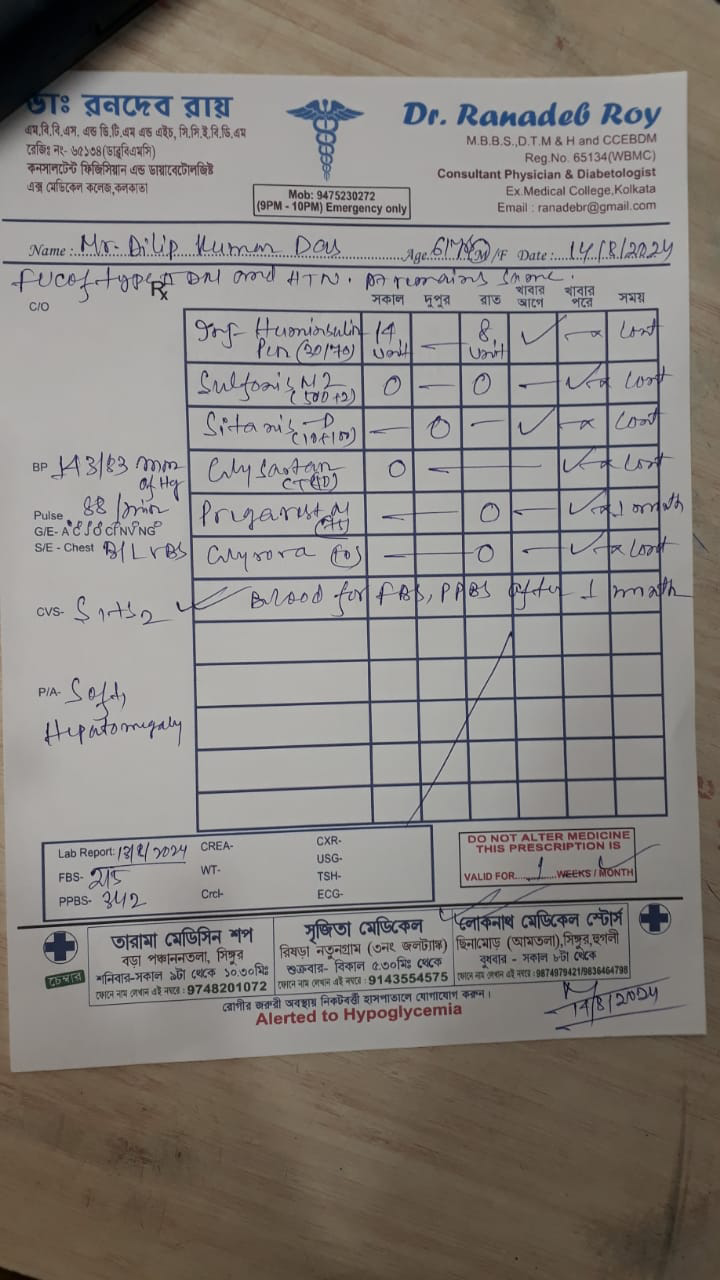 ডাঃ রনদেব রায়
এম.বি.বি.এস. এন্ড ডি.টি.এম এন্ড এইচ, সি.সি.ই.বি.ডি.এম
রেজিঃ নং- ৬৫১৩৪(ডাব্লুবিএমসি)
কনসালটেন্ট ফিজিসিয়ান এন্ড ডায়াবেটোলজিষ্ট
এক্স মেডিকেল কলেজ,কলকাতা
Mob: 9475230272
(9PM - 10PM) Emergency only
Dr. Ranadeb Roy
M.B.B.S.,D.T.M & H and CCEBDM
Reg.No. 65134(WBMC)
Consultant Physician & Diabetologist
Ex.Medical College,Kolkata
Email : ranadebr@gmail.com
Name : Mr. Dilip Kumar Das Age 61 M/F Date : 14/8/2024
DM and HTN. Pt remains same.
Rx
C/O
সকাল দুপুর রাত খাবার আগে খাবার পরে সময়
Inj- Huminsulin Pen (30/70) 14 unit — 8 unit ✓ — Cont
M2 (500+2) 0 — 0 — ✓ Cont
D — 0 — ✓ — Cont
BP 143/83 mm of Hg
CT 0 — ✓ Cont
Pulse 88/min
M — 0 — ✓ 1 month
G/E-
S/E - Chest B/L VBS
(10) — 0 — ✓ Cont
CVS- S1+S2
Blood for FBS, PPBS after 1 month
P/A- Soft,
Hepatomegaly
Lab Report: 13/8/2024 CREA- CXR-
FBS- 215 WT- USG-
PPBS- 342 Crcl- TSH-
ECG-
DO NOT ALTER MEDICINE
THIS PRESCRIPTION IS
VALID FOR 1 WEEKS / MONTH
চেম্বার
তারামা মেডিসিন শপ
বড়া পঞ্চাননতলা, সিঙ্গুর
শনিবার-সকাল ৯টা থেকে ১০.৩০মিঃ
ফোনে নাম লেখান এই নম্বরে : 9748201072
সৃজিতা মেডিকেল
রিষড়া নতুনগ্রাম (৩নং জলট্যাঙ্ক)
শুক্রবার- বিকাল ৫.৩০মিঃ থেকে
ফোনে নাম লেখান এই নম্বরে : 9143554575
লোকনাথ মেডিকেল স্টোর্স
ছিনামোড় (আমতলা),সিঙ্গুর,হুগলী
বুধবার - সকাল ৮টা থেকে
ফোনে নাম লেখান এই নম্বরে : 9874979421/9836464798
রোগীর জরুরী অবস্থায় নিকটবর্তী হাসপাতালে যোগাযোগ করুন।
Alerted to Hypoglycemia
14/8/2024